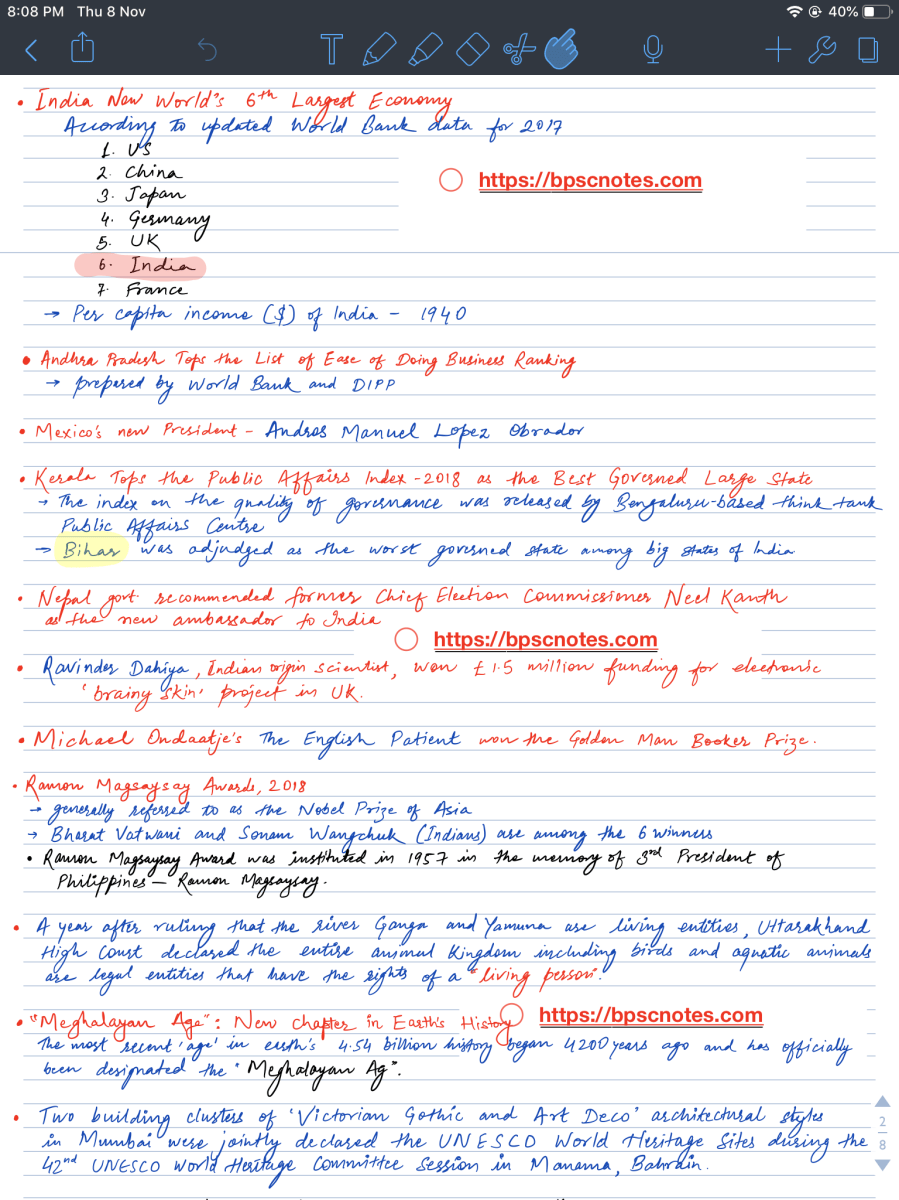 8:08 PM Thu 8 Nov
40%
• India New World's 6th Largest Economy
According to updated World Bank data for 2017
1. US
2. China
https://bpscnotes.com
3. Japan
4. Germany
5. UK
6. India
7. France
→ Per capita income ($) of India - 1940
• Andhra Pradesh Tops the List of Ease of Doing Business Ranking
→ prepared by World Bank and DIPP
• Mexico's new President - Andres Manuel Lopez Obrador
• Kerala Tops the Public Affairs Index -2018 as the Best Governed Large State
→ The index on the quality of governance was released by Bengaluru-based think tank
Public Affairs Centre
→ Bihar was adjudged as the worst governed state among big states of India
• Nepal govt. recommended former Chief Election Commissioner Neel Kanth
as the new ambassador to India
https://bpscnotes.com
• Ravinder Dahiya, Indian origin scientist, won £1.5 million funding for electronic
'brainy skin' project in UK.
• Michael Ondaatje's The English Patient won the Golden Man Booker Prize.
• Ramon Magsaysay Awards, 2018
→ generally referred to as the Nobel Prize of Asia
→ Bharat Vatwani and Sonam Wangchuk (Indians) are among the 6 winners
• Ramon Magsaysay Award was instituted in 1957 in the memory of 3rd President of
Philippines — Ramon Magsaysay.
• A year after ruling that the river Ganga and Yamuna are living entities, Uttarakhand
High Court declared the entire animal kingdom including birds and aquatic animals
are legal entities that have the rights of a "living person".
• "Meghalayan Age": New chapter in Earth's History
https://bpscnotes.com
The most recent 'age' in earth's 4.54 billion history began 4200 years ago and has officially
been designated the "Meghalayan Ag".
• Two building clusters of 'Victorian Gothic and Art Deco' architectural styles
in Mumbai were jointly declared the UNESCO World Heritage Sites during the
42nd UNESCO World Heritage Committee Session in Manama, Bahrain.
2
8